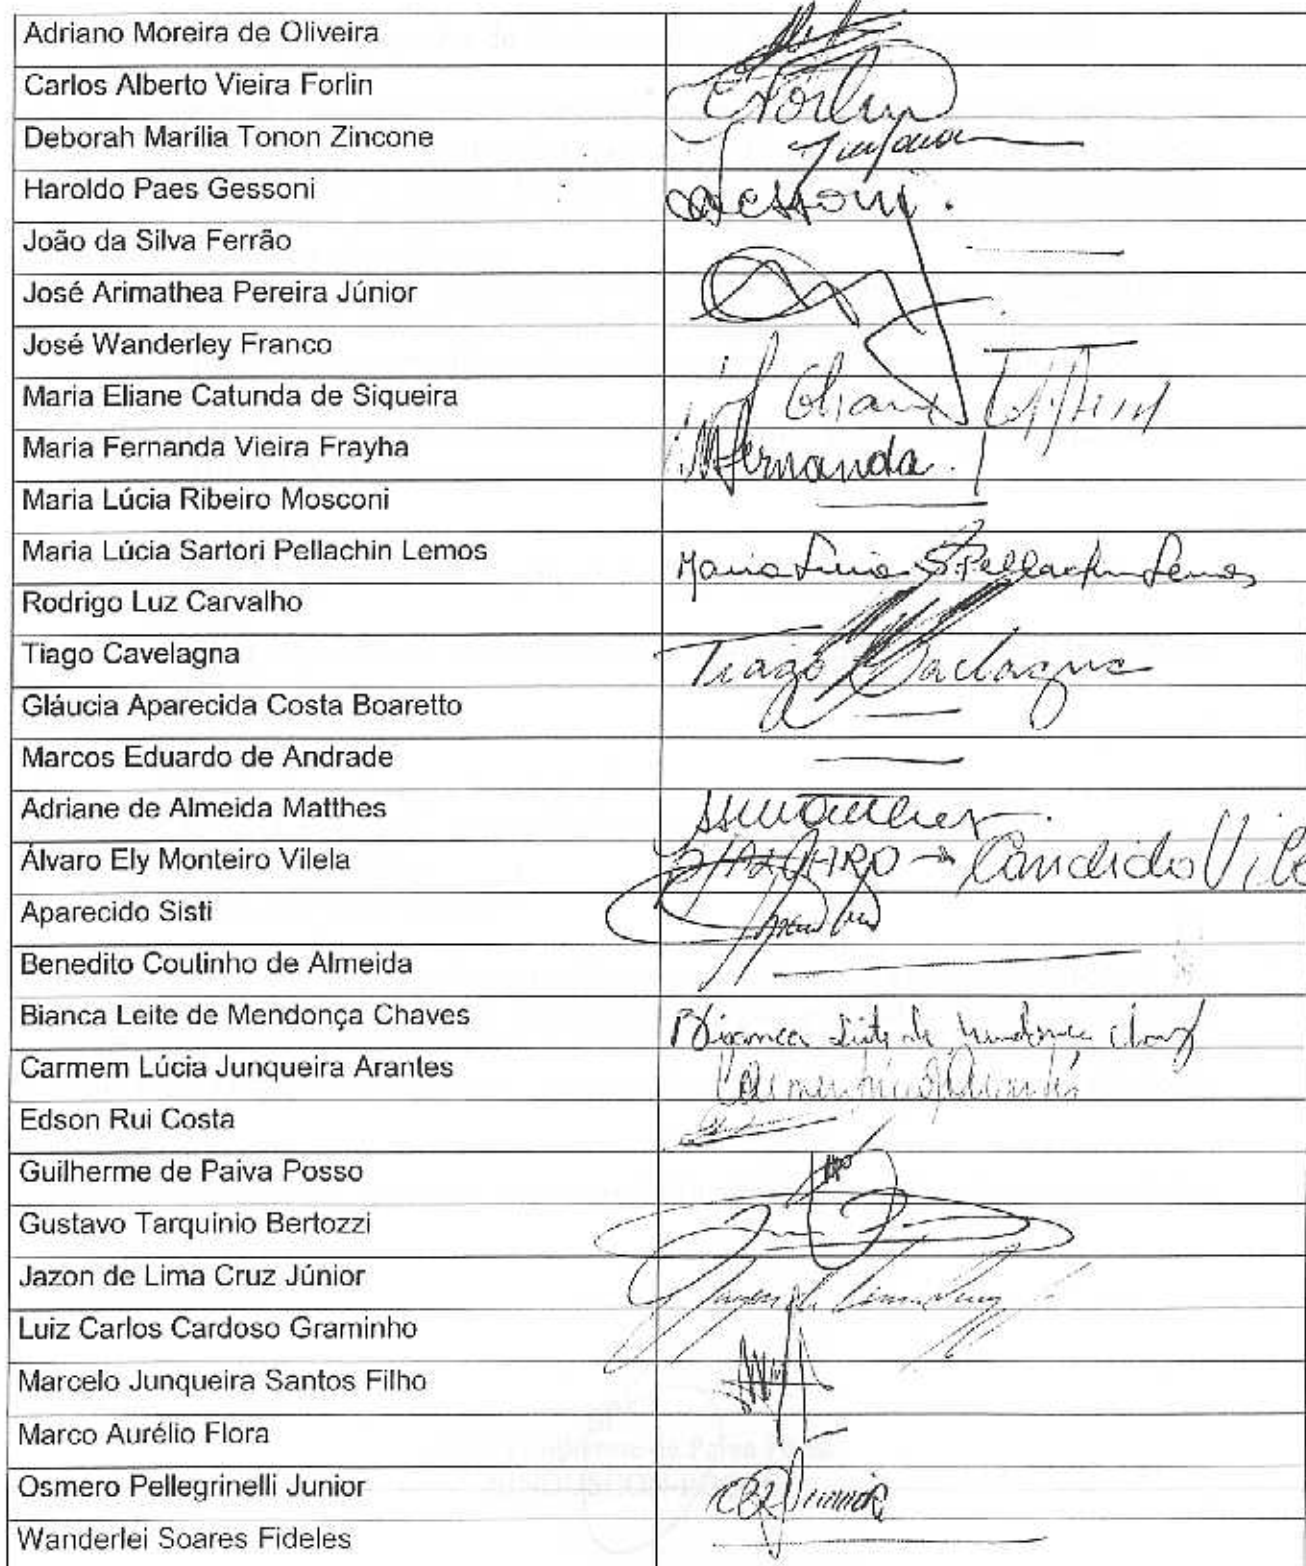 Adriano Moreira de Oliveira
Carlos Alberto Vieira Forlin
Forlin
Deborah Marília Tonon Zincone
Haroldo Paes Gessoni
Gessoni.
João da Silva Ferrão
José Arimathea Pereira Júnior
José Wanderley Franco
Maria Eliane Catunda de Siqueira
Eliane
Maria Fernanda Vieira Frayha
Mfernanda.
Maria Lúcia Ribeiro Mosconi
Maria Lúcia Sartori Pellachin Lemos
Maria Lucia S. Pellachin Lemos
Rodrigo Luz Carvalho
Tiago Cavelagna
Tiago Cavelagna
Gláucia Aparecida Costa Boaretto
Marcos Eduardo de Andrade
Adriane de Almeida Matthes
Álvaro Ely Monteiro Vilela
ALVARO → Candido Vile
Aparecido Sisti
Benedito Coutinho de Almeida
Bianca Leite de Mendonça Chaves
Bianca Leite de Mendonça Chaves
Carmem Lúcia Junqueira Arantes
Edson Rui Costa
Guilherme de Paiva Posso
Gustavo Tarquinio Bertozzi
Jazon de Lima Cruz Júnior
Luiz Carlos Cardoso Graminho
Marcelo Junqueira Santos Filho
Marco Aurélio Flora
Osmero Pellegrinelli Junior
Junior
Wanderlei Soares Fideles